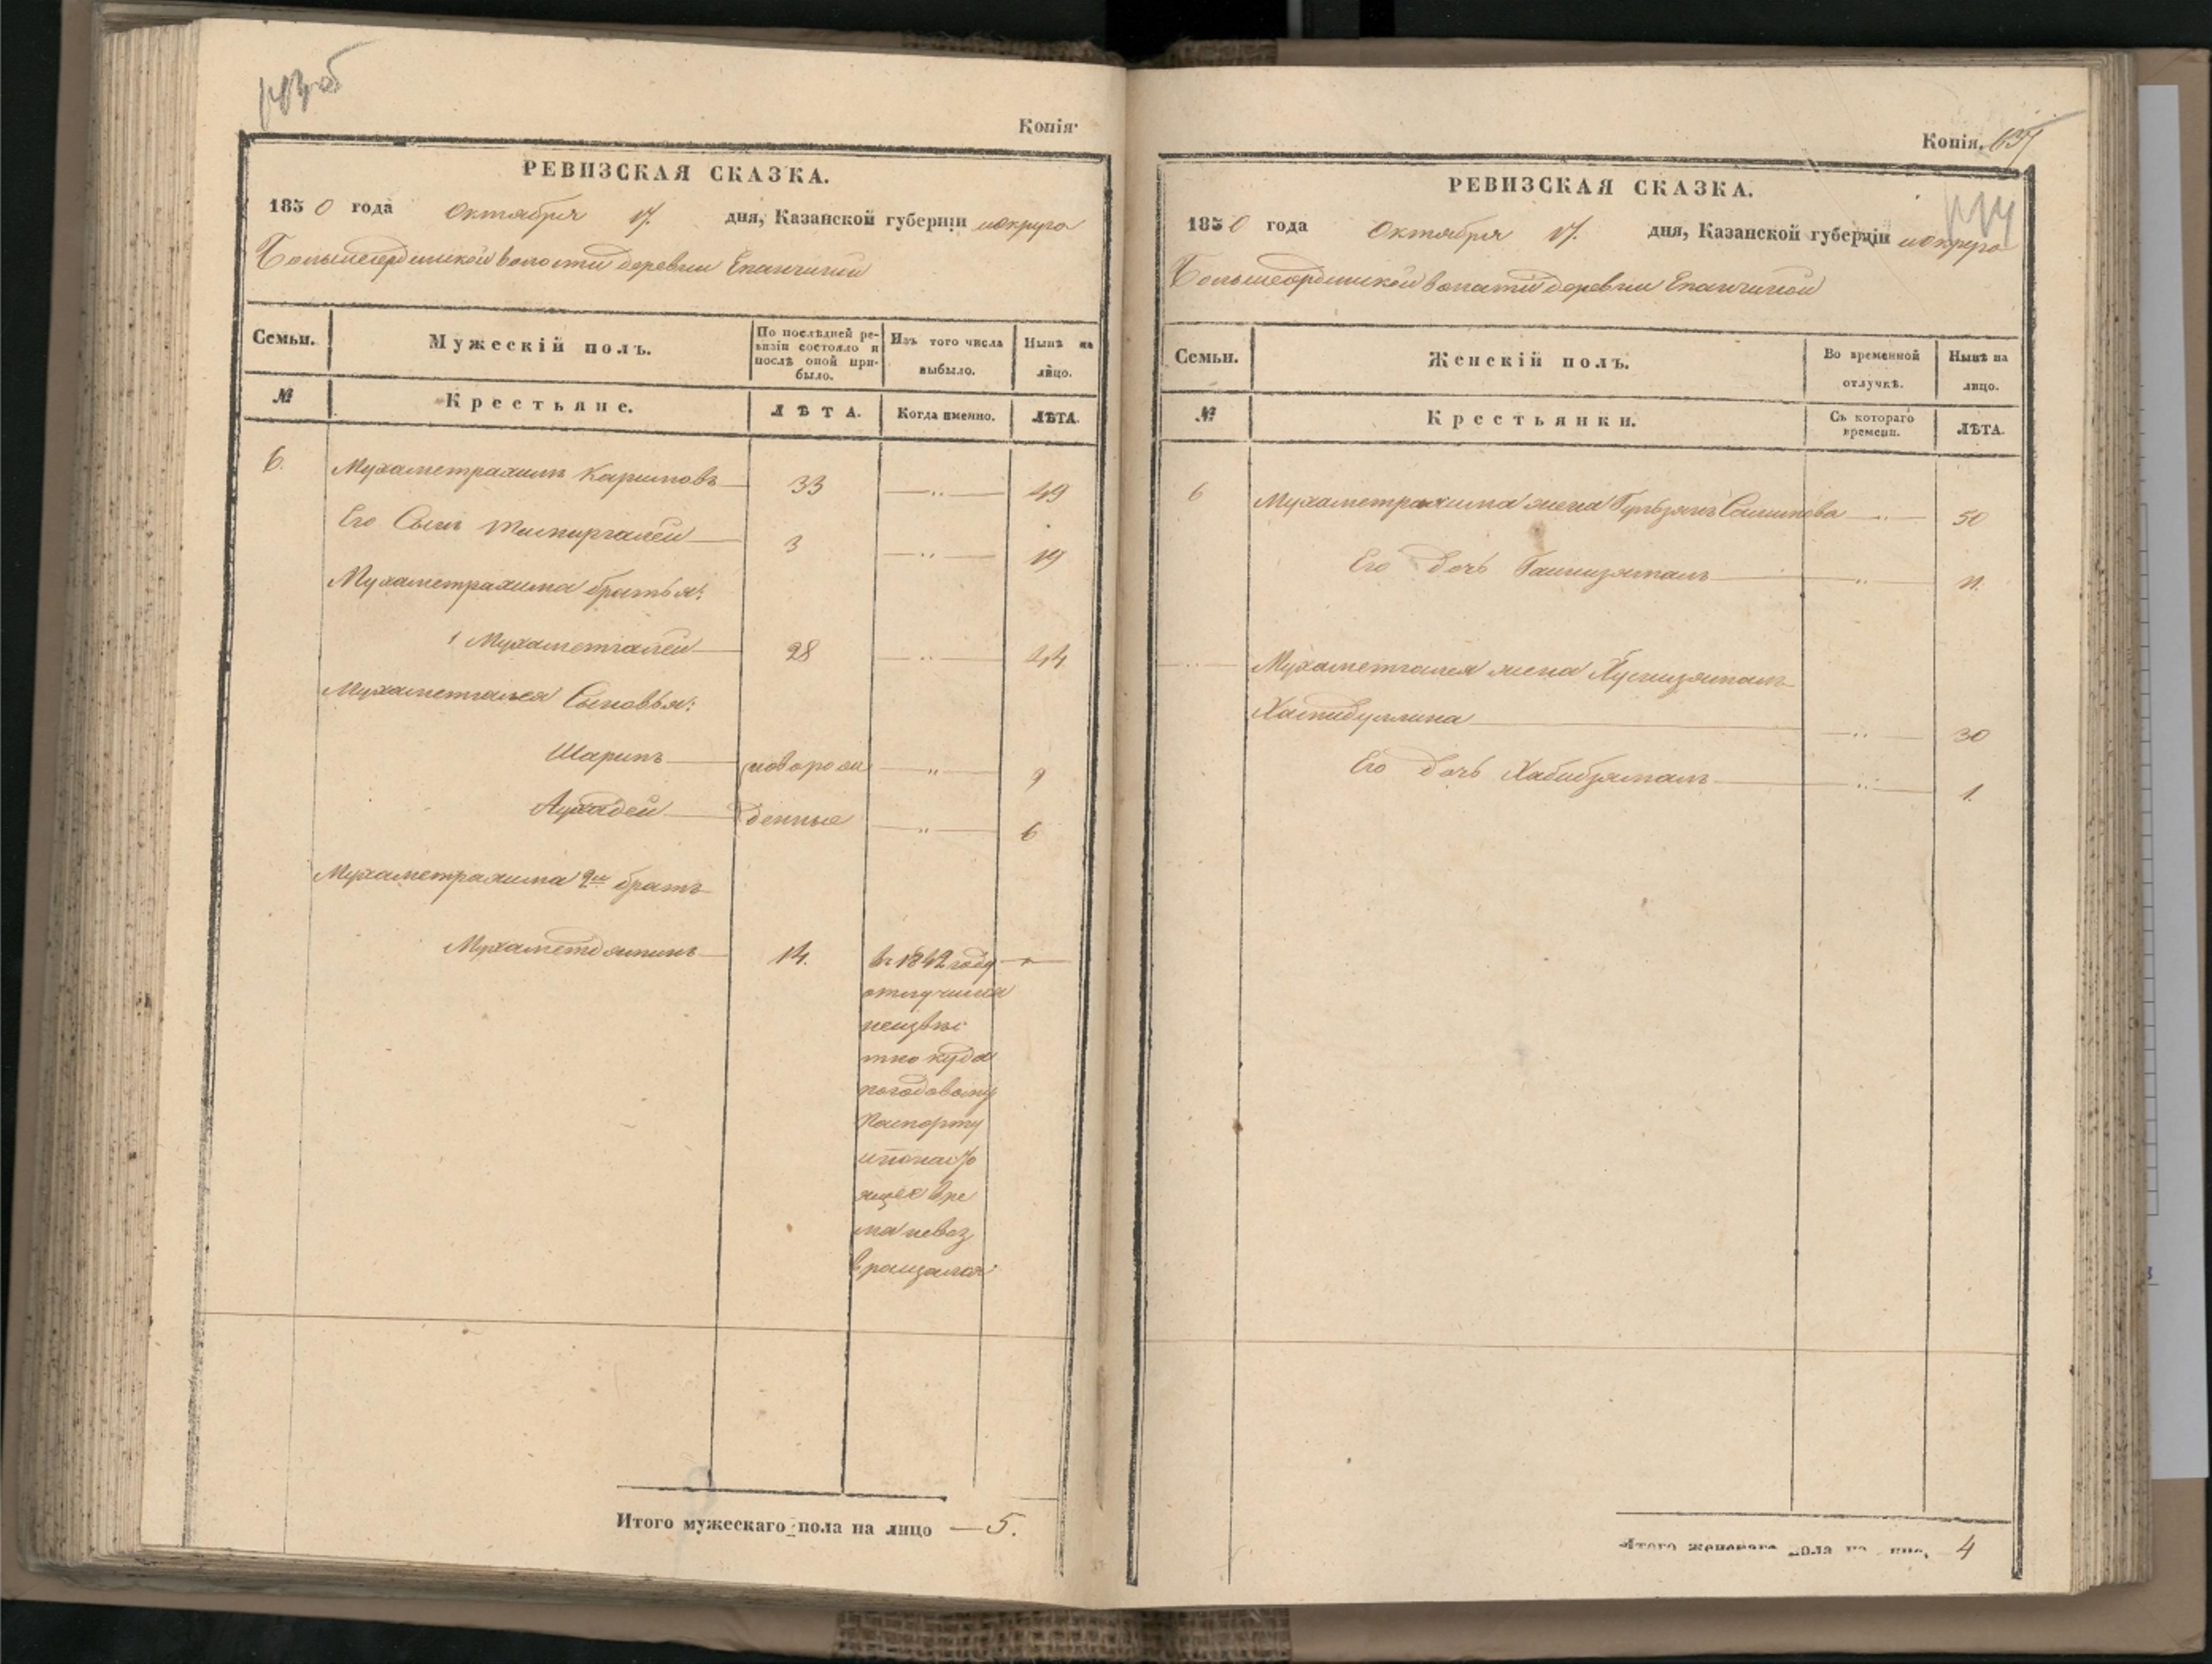 143 об
Копія
РЕВИЗСКАЯ СКАЗКА.
1850 года Октября 17. дня, Казанской губерніи и округа
Большеердинской волости деревни Епанчиной
Семьи. Мужескій полъ. По послѣдней ревизіи состояло и послѣ оной прибыло. Изъ того числа выбыло. Нынѣ на лицо.
№ Крестьяне. ЛѢТА. Когда именно. ЛѢТА.
6. Мухаметрахимъ Каримовъ 33 — „ — 49
Его Сынъ 3 — „ — 19
Мухаметрахима братья:
1 Мухаметгалей 28 — „ — 44
Мухаметгалея Сыновья:
Шарипъ новорож — „ — 9
Ахмадей денные — „ — 6
Мухаметрахима 2й братъ
Мухаметдяминъ 14. въ 1842 году —
отлучился
неизвѣс
тно куда
погодовому
паспорту
и понаст
ящее вре
мя невоз
вращался
Итого мужескаго пола на лицо — 5.
Копія. 637
144
РЕВИЗСКАЯ СКАЗКА.
1850 года Октября 17. дня, Казанской губерніи и округа
Большеердинской волости деревни Епанчиной
Семьи. Женскій полъ. Во временной отлучкѣ. Нынѣ на лицо.
№ Крестьянки. Съ котораго времени. ЛѢТА.
6 Мухаметрахима жена Гульзянъ Салимова — „ — 50
Его дочь — „ — 11.
— „ — Мухаметгалея жена Хуснизямалъ
Хабибуллина — „ — 30
Его дочь Хабибзямалъ — „ — 1.
Итого женскаго пола на лицо, 4